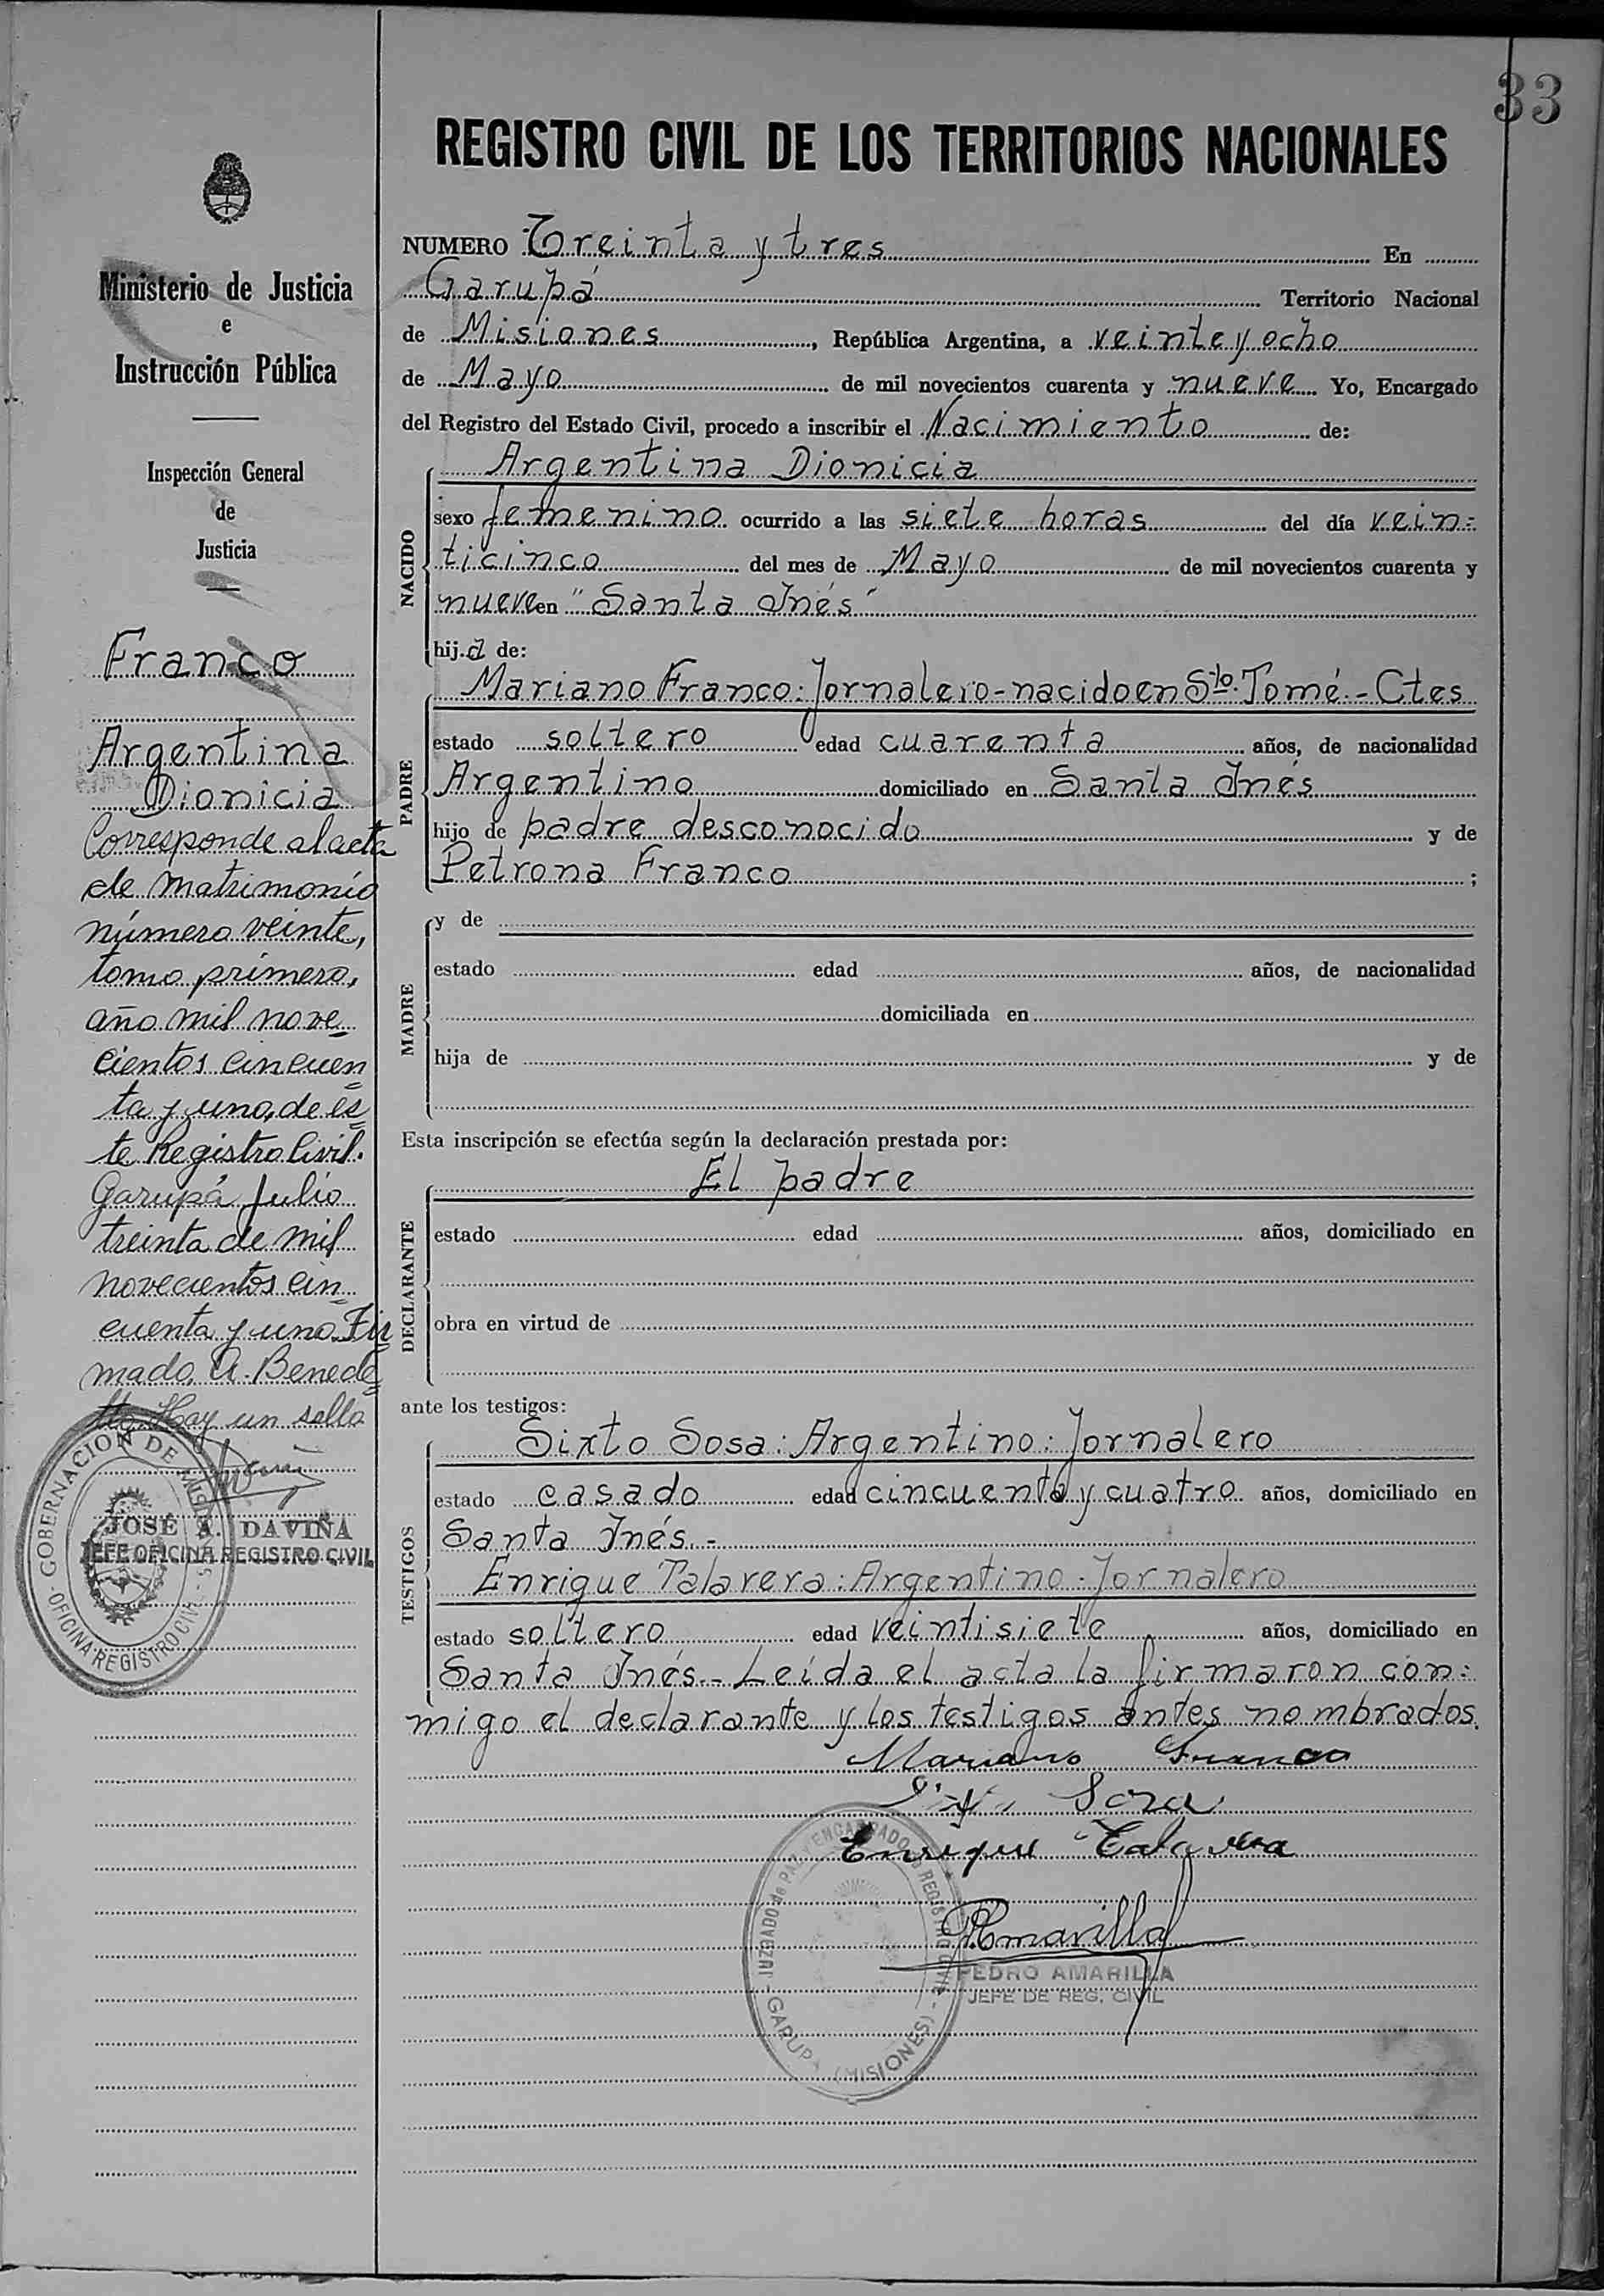 33
REGISTRO CIVIL DE LOS TERRITORIOS NACIONALES
Ministerio de Justicia
e
Instrucción Pública
Inspección General
de
Justicia
Franco
Argentina
Dionicia
Corresponde al acta
de matrimonio
número veinte,
tomo primero,
año mil nove=
cientos cincuen=
ta y uno, de es=
te Registro Civil.
Garupá Julio
treinta de mil
novecientos cin=
cuenta y uno. Fir=
mado. A. Benede=
tto. Hay un sello
GOBERNACION DE MISIONES - OFICINA REGISTRO CIVIL -
JOSÉ A. DAVIÑA
JEFE OFICINA REGISTRO CIVIL
NUMERO Treinta y tres En
Garupá Territorio Nacional
de Misiones, República Argentina, a veinte y ocho
de Mayo de mil novecientos cuarenta y nueve Yo, Encargado
del Registro del Estado Civil, procedo a inscribir el Nacimiento de:
NACIDO
Argentina Dionicia
sexo femenino ocurrido a las siete horas del día vein=
ticinco del mes de Mayo de mil novecientos cuarenta y
nueve en "Santa Inés"
hija de:
PADRE
Mariano Franco: Jornalero-nacido en Sto. Tomé.-Ctes
estado soltero edad cuarenta años, de nacionalidad
Argentino domiciliado en Santa Inés
hijo de padre desconocido y de
Petrona Franco ;
MADRE
y de
estado edad años, de nacionalidad
domiciliada en
hija de y de
Esta inscripción se efectúa según la declaración prestada por:
DECLARANTE
El padre
estado edad años, domiciliado en
obra en virtud de
ante los testigos:
TESTIGOS
Sixto Sosa: Argentino: Jornalero
estado casado edad cincuenta y cuatro años, domiciliado en
Santa Inés.-
Enrique Talavera: Argentino: Jornalero
estado soltero edad veintisiete años, domiciliado en
Santa Inés.- Leída el acta la firmaron con=
migo el declarante y los testigos antes nombrados.
Mariano Franco
Sixto Sosa
Enrique Talavera
PAmarilla
PEDRO AMARILLA
JEFE DE REG. CIVIL
JUZGADO de PAZ y ENCARGADO de REGISTRO CIVIL - GARUPA (MISIONES) -